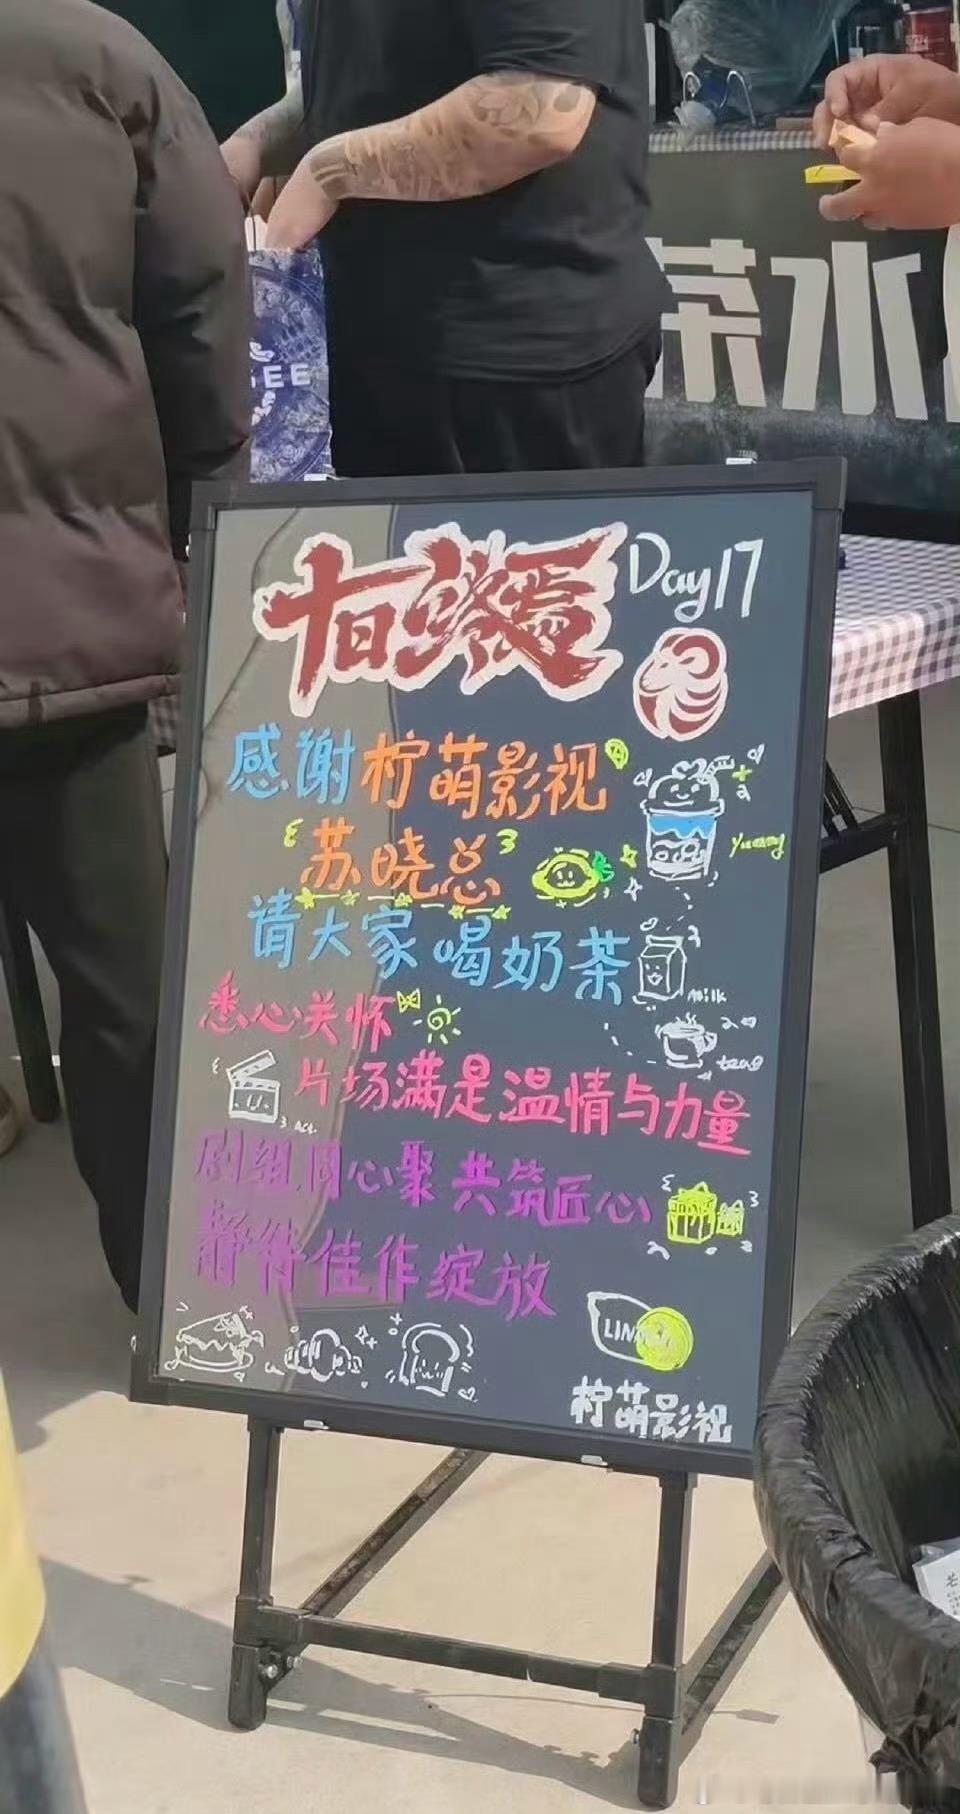 茶水
十日终焉 Day17
感谢柠萌影视
苏晓总
yummy
请大家喝奶茶
milk
悉心关怀
tea
片场满是温情与力量
剧组同心聚 共筑匠心
静待佳作绽放
柠萌影视